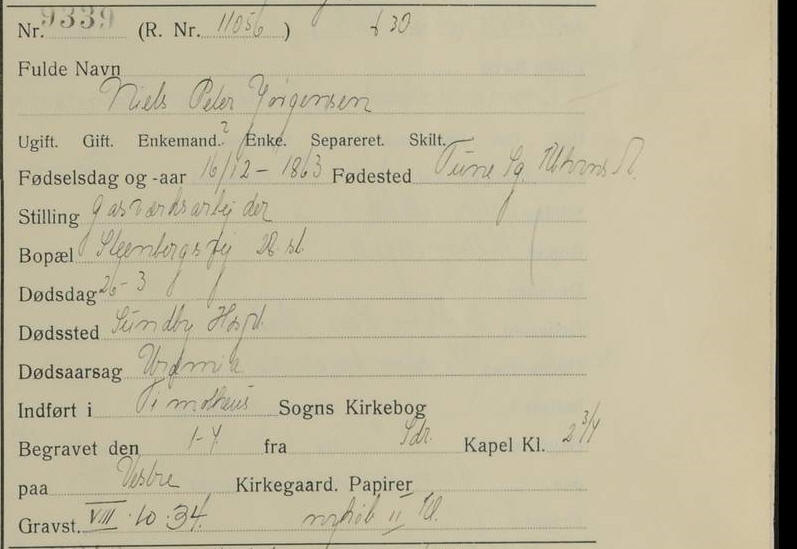 Nr. 9339 (R. Nr. 11056 ) 30
Fulde Navn
Niels Peter Jørgensen
Ugift. Gift. Enkemand.? Enke. Separeret. Skilt.
Fødselsdag og -aar 16/12 - 1863 Fødested Tune Sg.
Stilling Gasværksarbejder
Bopæl 28 st
Dødsdag 26-3
Dødssted Sundby Hospl.
Dødsaarsag Uræmia
Indført i Timotheus Sogns Kirkebog
Begravet den 1-4 fra Sdr. Kapel Kl. 2 3/4
paa Vestre Kirkegaard. Papirer
Gravst. VIII · 10 · 34. nykøb II Kl.